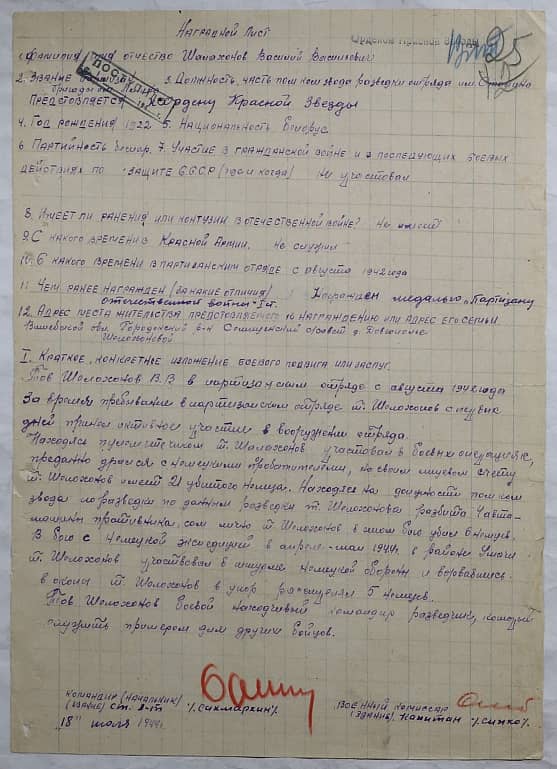 Наградной лист
1. Фамилия, имя отчество Шолохонов Василий Васильевич
2. Звание 3. Должность, часть пом ком звода разведки отряда им.
представляется к ордену Красной Звезды
4. Год рождения 1922 5. Национальность Белорус
6. Партийность 7. Участие в гражданской войне и в последующих боевых
действиях по защите СССР (где и когда) не участвовал
8. Имеет ли ранения или контузии в отечественной войне? не имеет
9. С какого времени в Красной Армии. не служил
10. С какого времени в партизанским отряде. с августа 1942 года
11. Чем ранее награжден (за какие отличия) Награжден медалью "Партизану
отечественной войны" I ст.
12. Адрес места жительства представляемого к награждению или адрес его семьи.
Витебской обл. Городокский р-н с/совет д.
Шолохоновой
I. Краткое, конкретное изложение боевого подвига или заслуг.
Тов Шолохонов В.В в партизанском отряде с августа 1942 года
За время пребывание в партизанском отряде т. Шолохонов с первых
дней принел активное участие в вооружении отряда.
Находясь пулеметчиком т. Шолохонов участвовал в боевых операциях,
преданно дрался с немецкими на своем лицевом счету
т. Шолохонов имеет 21 убитого немца. Находясь на должности пом ком
звода по разведки по данным разведки т. Шолохонова разбита 1 авто-
машина противника, сам лично т Шолохонов в этом бою убил 6 немцев.
В бою с немецкой экспедицией в апреле-мае 1944 г. в районе Ушачи
т. Шолохонов участвовал в штурме немецкой обороны и ворвавшись
в окопы т. Шолохонов в упор расстрелял 5 немцев.
Тов Шолохонов боевой находчивый командир разведчик, который
служить примером для других бойцов.
командир (начальник)
(звание) ст. л-т
военный комиссар
(звание) капитан
"18" июля 1944 г.